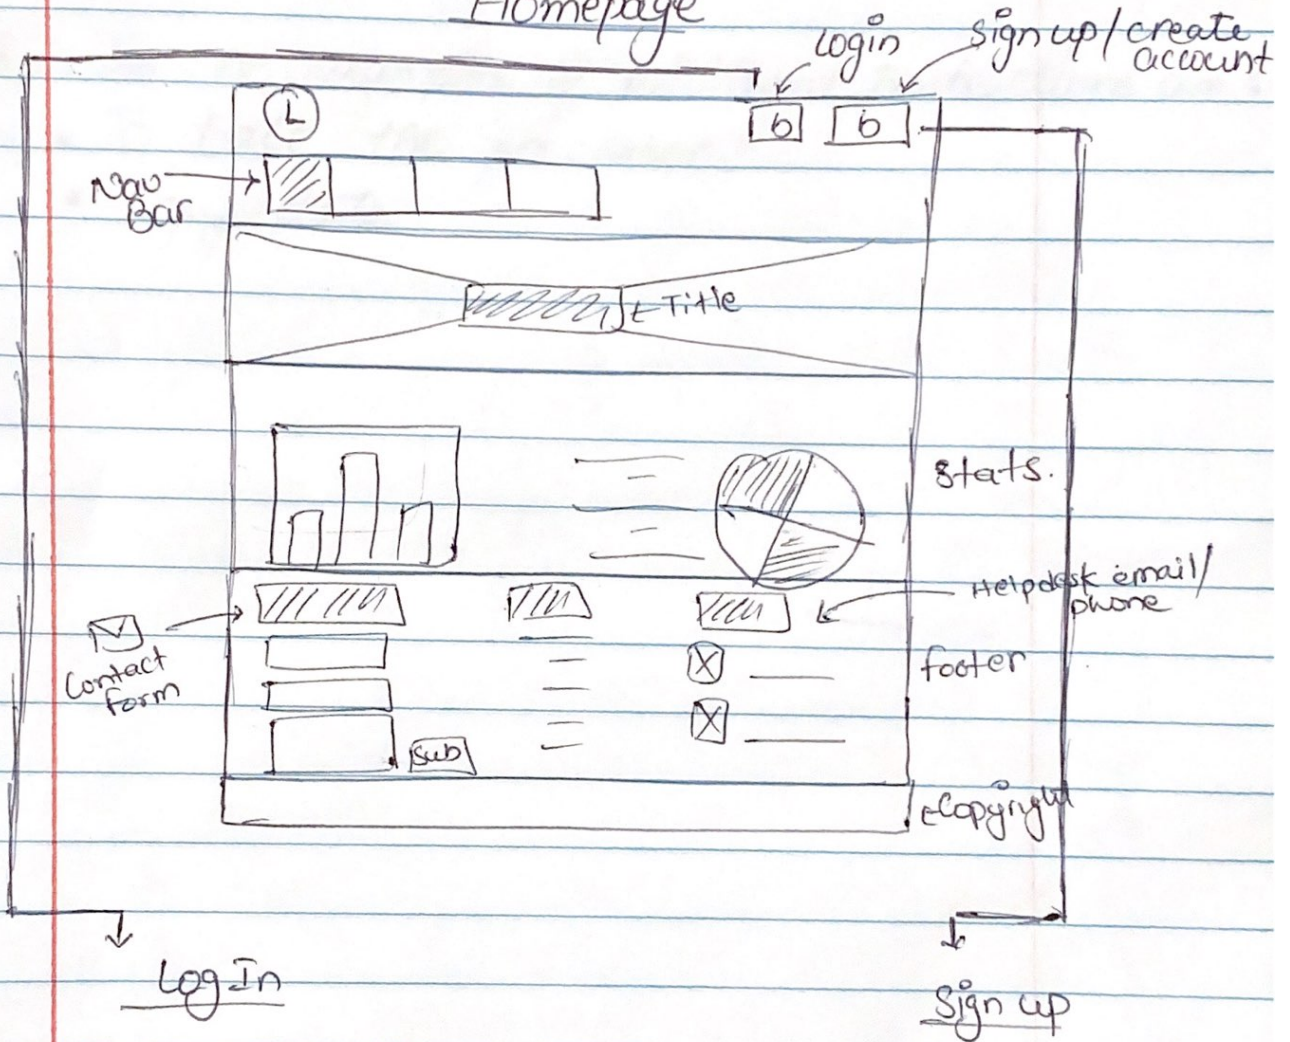 Homepage
login
sign up/create
account
L
b
b
Nav
Bar
Title
Stats.
Helpdesk email/
phone
Contact
form
footer
Sub
Copyright
Log In
Sign up